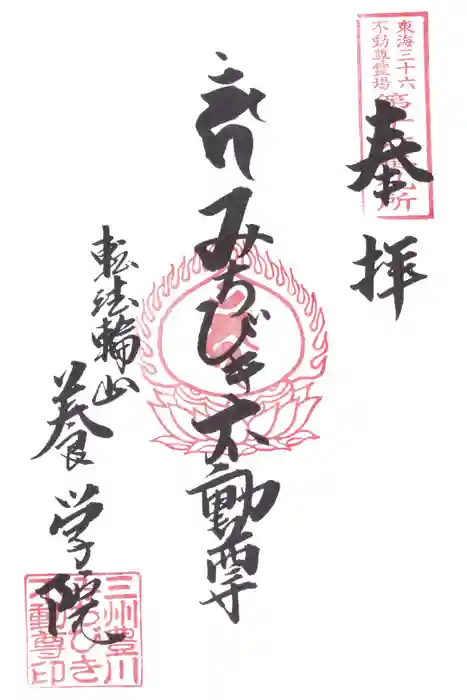 東海三十六
不動尊霊場
奉拝
みちびき不動尊
転法輪山
養学院
三州豊川
みちびき
不動尊印